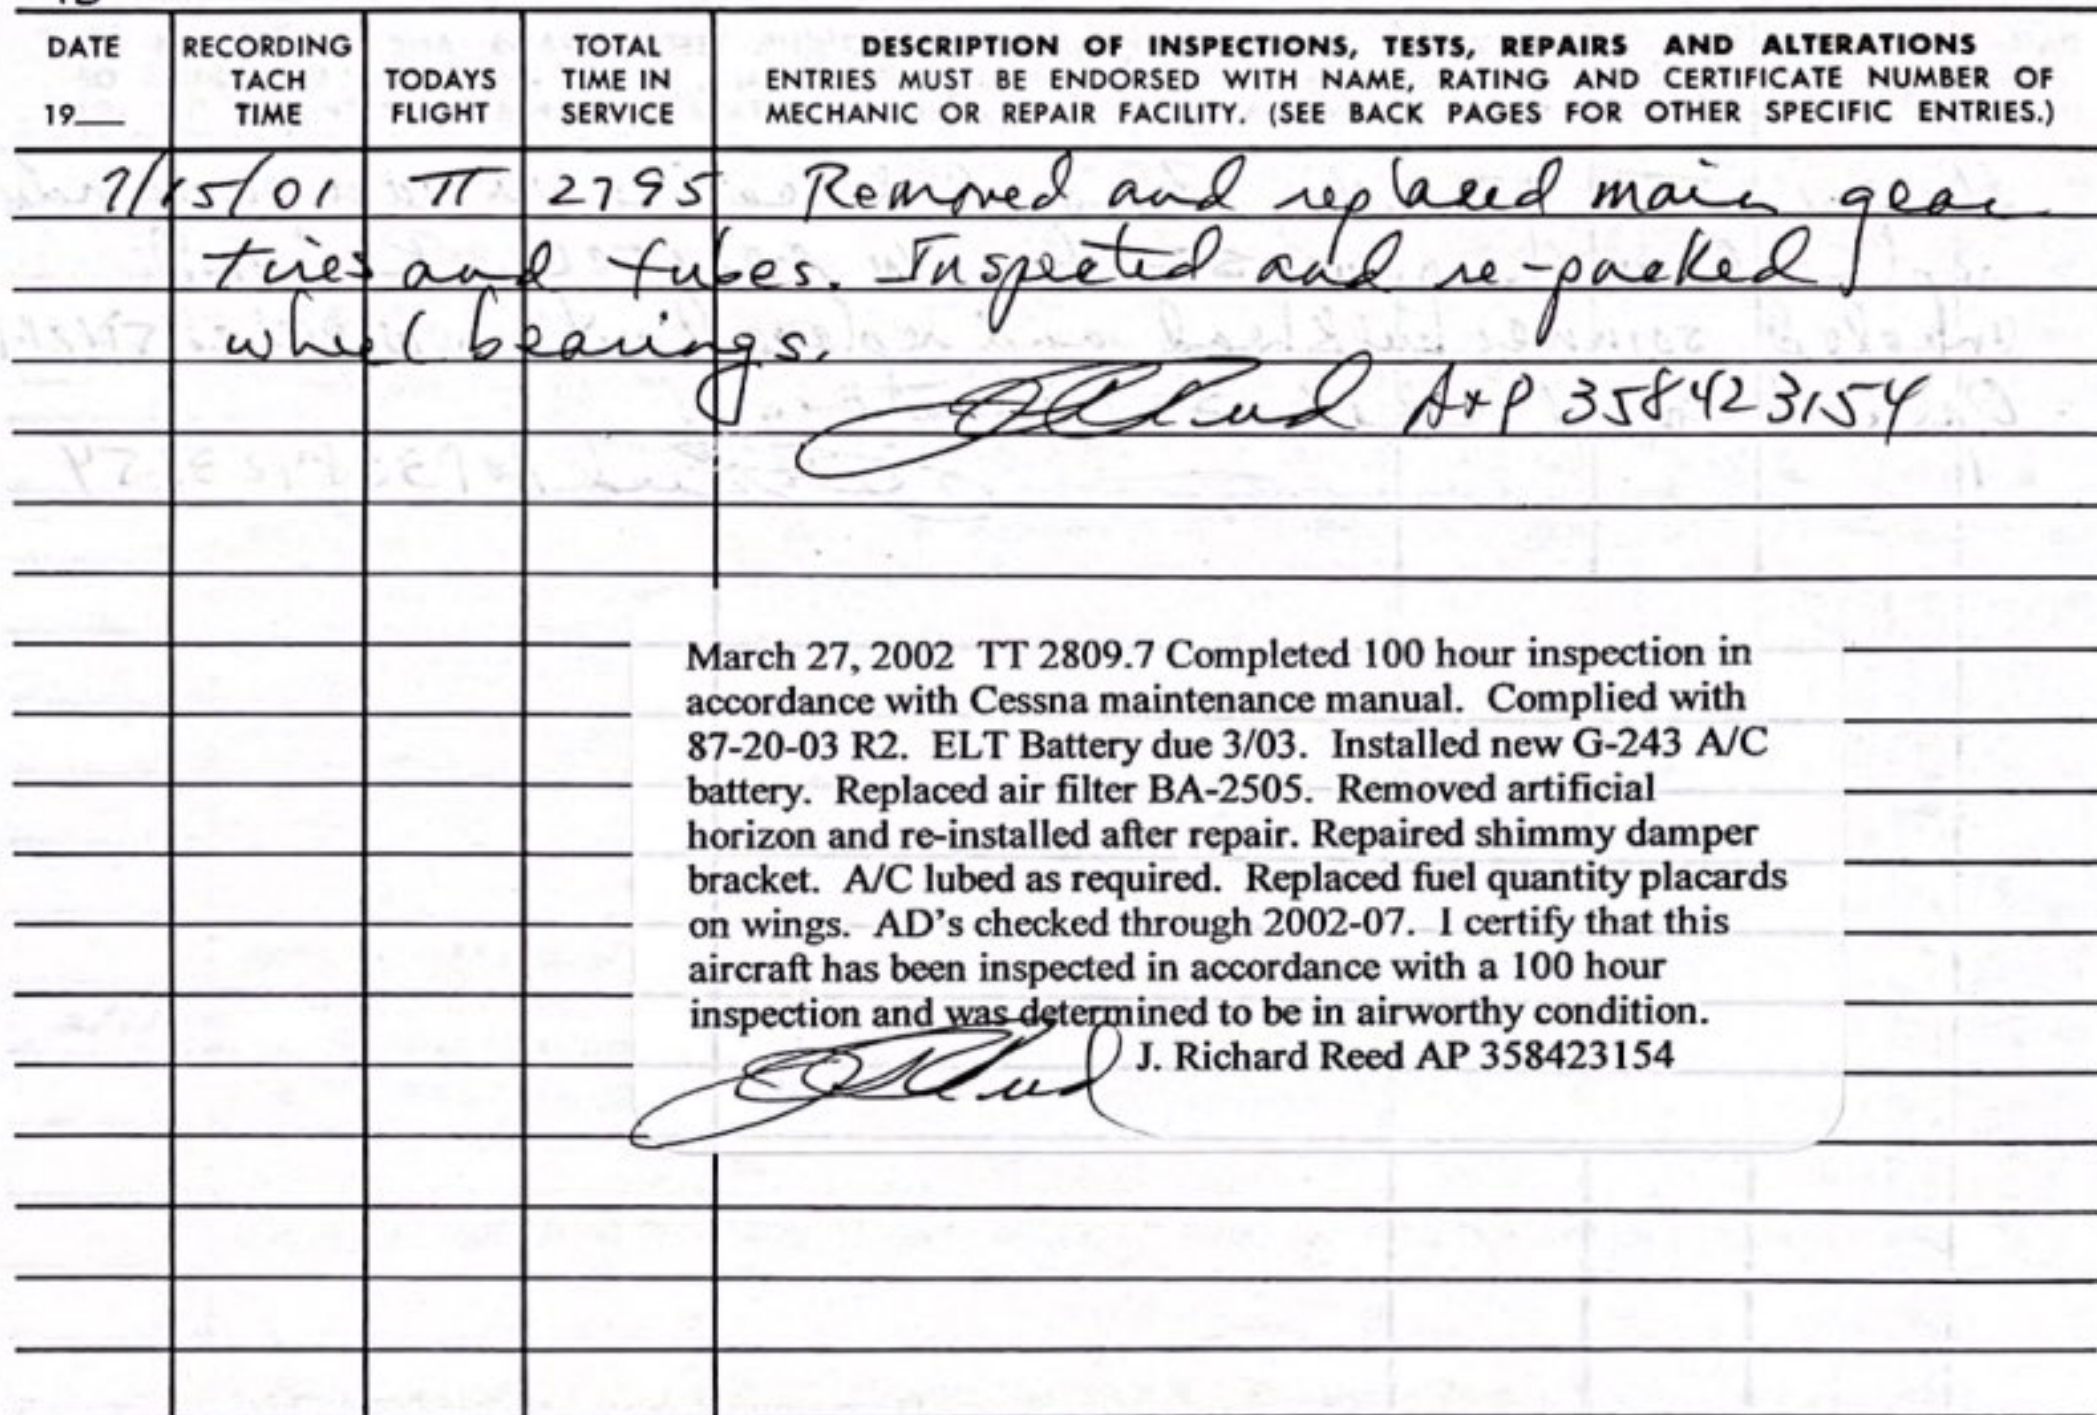 DATE
19__
RECORDING
TACH
TIME
TODAYS
FLIGHT
TOTAL
TIME IN
SERVICE
DESCRIPTION OF INSPECTIONS, TESTS, REPAIRS AND ALTERATIONS
ENTRIES MUST BE ENDORSED WITH NAME, RATING AND CERTIFICATE NUMBER OF
MECHANIC OR REPAIR FACILITY. (SEE BACK PAGES FOR OTHER SPECIFIC ENTRIES.)
7/15/01 TT 2795 Removed and replaced main gear
tires and tubes. Inspected and re-packed
wheel bearings.
J R Reed A+P 358423154
March 27, 2002 TT 2809.7 Completed 100 hour inspection in
accordance with Cessna maintenance manual. Complied with
87-20-03 R2. ELT Battery due 3/03. Installed new G-243 A/C
battery. Replaced air filter BA-2505. Removed artificial
horizon and re-installed after repair. Repaired shimmy damper
bracket. A/C lubed as required. Replaced fuel quantity placards
on wings. AD's checked through 2002-07. I certify that this
aircraft has been inspected in accordance with a 100 hour
inspection and was determined to be in airworthy condition.
J R Reed J. Richard Reed AP 358423154